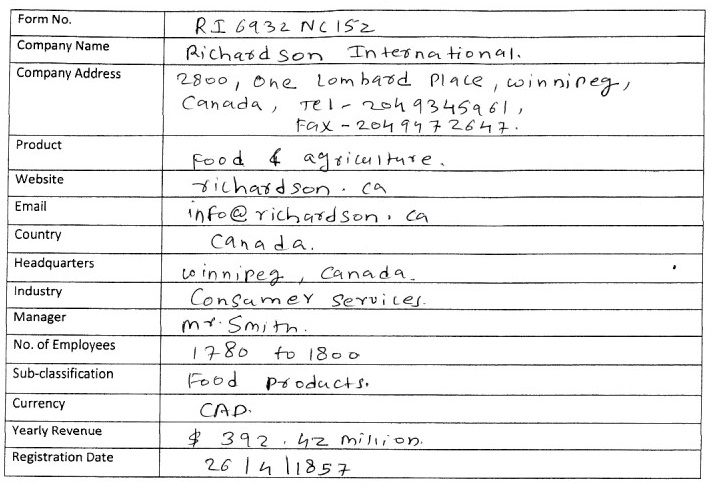 Form No. RI 6932 NC 152
Company Name Richardson International.
Company Address 2800, One Lombard Place, winnipeg,
Canada, Tel - 2049345961,
Fax - 2049472647.
Product Food & agriculture.
Website richardson.ca
Email info@richardson.ca
Country Canada.
Headquarters winnipeg, Canada.
Industry Consumer Services.
Manager Mr. Smith.
No. of Employees 1780 to 1800
Sub-classification Food Products.
Currency CAD.
Yearly Revenue $ 392.42 million.
Registration Date 26/4/1857